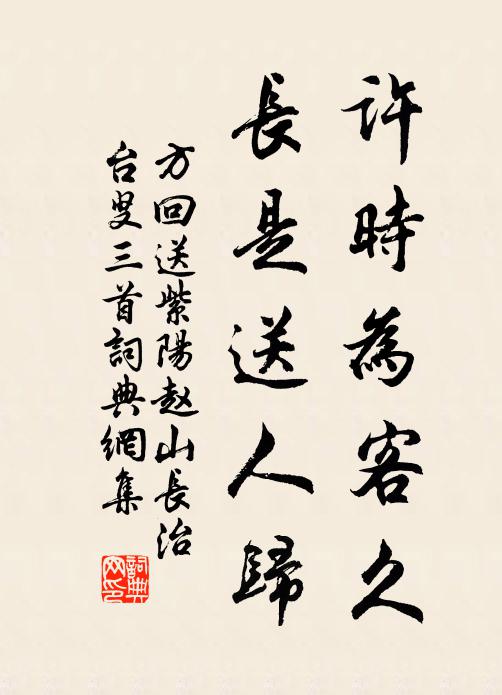 許時為客久
長是送人歸
方回送紫陽赵山長治
台叟三首詞典網集
詞典
网印